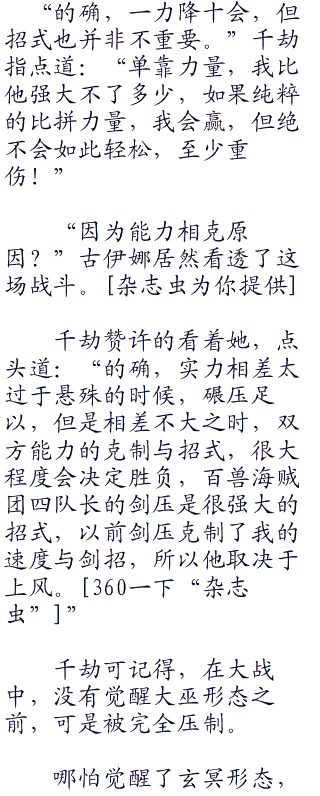 “的确，一力降十会，但
招式也并非不重要。”千劫
指点道：“单靠力量，我比
他强大不了多少，如果纯粹
的比拼力量，我会赢，但绝
不会如此轻松，至少重
伤！”
“因为能力相克原
因？”古伊娜居然看透了这
场战斗。[杂志虫为你提供]
千劫赞许的看着她，点
头道：“的确，实力相差太
过于悬殊的时候，碾压足
以，但是相差不大之时，双
方能力的克制与招式，很大
程度会决定胜负，百兽海贼
团四队长的剑压是很强大的
招式，以前剑压克制了我的
速度与剑招，所以他取决于
上风。[360一下“杂志
虫”]”
千劫可记得，在大战
中，没有觉醒大巫形态之
前，可是被完全压制。
哪怕觉醒了玄冥形态，